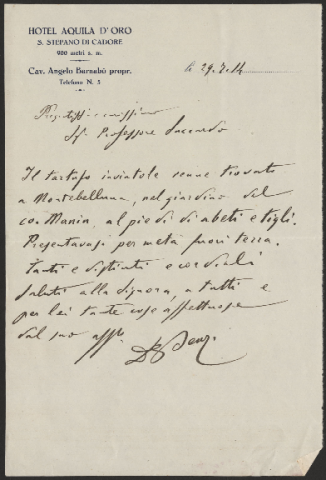 HOTEL AQUILA D'ORO
S. STEFANO DI CADORE
900 metri s. m.
Cav. Angelo Barnabò propr.
Telefono N. 3
li 29.7.14
Sig. Professore Saccardo
Il tartufo inviatole venne trovato
a Montebelluna, nel giardino del
co: Manin, ai piedi di abeti e tigli.
Presentavasi per metà fuori terra.
Tanti e distinti e cordiali
saluti alla signora, a tutti e
per lei tante cose affettuose
dal suo affo